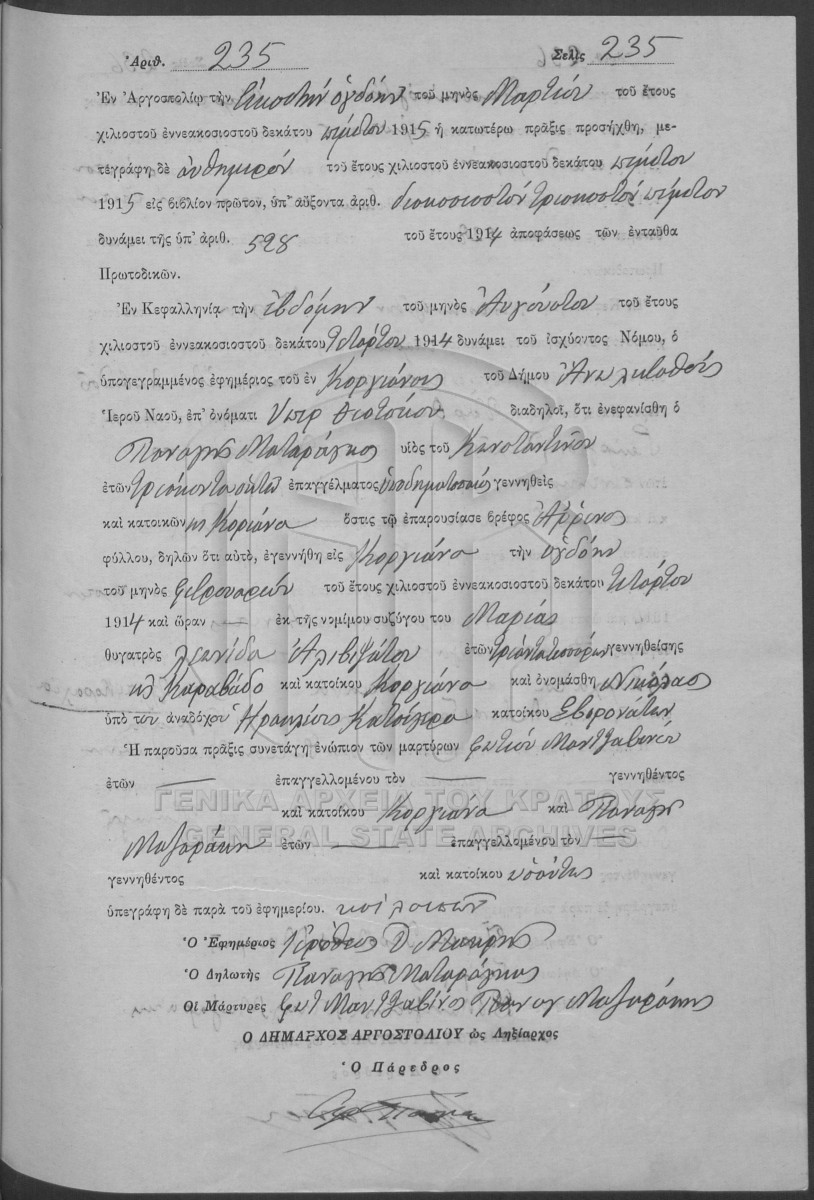 Ἀριθ. 235 Σελὶς 235
Ἐν Ἀργοστολίῳ τὴν Εἰκοστὴν ὀγδόην τοῦ μηνὸς Μαρτίου τοῦ ἔτους
χιλιοστοῦ ἐννεακοσιοστοῦ δεκάτου πέμπτου 1915 ἡ κατωτέρω πρᾶξις προσήχθη, με-
τεγράφη δὲ αὐθημερόν τοῦ ἔτους χιλιοστοῦ ἐννεακοσιοστοῦ δεκάτου πέμπτου
1915 εἰς βιβλίον πρῶτον, ὑπ' αὔξοντα ἀριθ. διακοσιοστόν τριακοστόν πέμπτον
δυνάμει τῆς ὑπ' ἀριθ. 598 τοῦ ἔτους 1914 ἀποφάσεως τῶν ἐνταῦθα
Πρωτοδικῶν.
Ἐν Κεφαλληνίᾳ τὴν ἑβδόμην τοῦ μηνὸς Αὐγούστου τοῦ ἔτους
χιλιοστοῦ ἐννεακοσιοστοῦ δεκάτου τετάρτου 1914 δυνάμει τοῦ ἰσχύοντος Νόμου, ὁ
ὑπογεγραμμένος ἐφημέριος τοῦ ἐν Κοργιάνοις τοῦ Δήμου
Ἱεροῦ Ναοῦ, ἐπ' ὀνόματι Ὑπερ Θεοτόκου διαδηλοῖ, ὅτι ἐνεφανίσθη ὁ
Παναγῆς Ματαράγκας υἱὸς τοῦ Κωνσταντίνου
ἐτῶν τριάκοντα ὀκτώ ἐπαγγέλματος ὑποδηματοποιός γεννηθεὶς
καὶ κατοικῶν εἰς Κοριάνα ὅστις τῷ ἐπαρουσίασε βρέφος Ἄρρενος
φύλλου, δηλῶν ὅτι αὐτὸ, ἐγεννήθη εἰς Κοργιάνα τὴν ὀγδόην
τοῦ μηνὸς Φεβρουαρίου τοῦ ἔτους χιλιοστοῦ ἐννεακοσιοστοῦ δεκάτου τετάρτου
1914 καὶ ὥραν — ἐκ τῆς νομίμου συζύγου του Μαρίας
θυγατρὸς Λεωνίδα Ἀλιβιζάτου ἐτῶν γεννηθείσης
εἰς Καραβάδο καὶ κατοίκου Κοργιάνα καὶ ὀνομάσθη Νικόλαος
ὑπὸ τοῦ ἀναδόχου κατοίκου Σβορονάτων
Ἡ παροῦσα πρᾶξις συνετάγη ἐνώπιον τῶν μαρτύρων Φωτίου Μαντζαβίνου
ἐτῶν — ἐπαγγελλομένου τὸν — γεννηθέντος
καὶ κατοίκου Κοργιάνα καὶ Παναγῆ
Μαζαράκη ἐτῶν — ἐπαγγελλομένου τὸν —
γεννηθέντος καὶ κατοίκου
ὑπεγράφη δὲ παρὰ τοῦ ἐφημερίου. καί λοιπῶν
Ὁ Ἐφημέριος Ἱερόθεος Μακρῆς
Ὁ Δηλωτὴς Παναγῆς Ματαράγκας
Οἱ Μάρτυρες Φωτ Μαντζαβίνος Παναγ Μαζαράκης
Ὁ ΔΗΜΑΡΧΟΣ ΑΡΓΟΣΤΟΛΙΟΥ ὡς Ληξίαρχος
Ὁ Πάρεδρος
ΓΕΝΙΚΑ ΑΡΧΕΙΑ ΤΟΥ ΚΡΑΤΟΥΣ
GENERAL STATE ARCHIVES